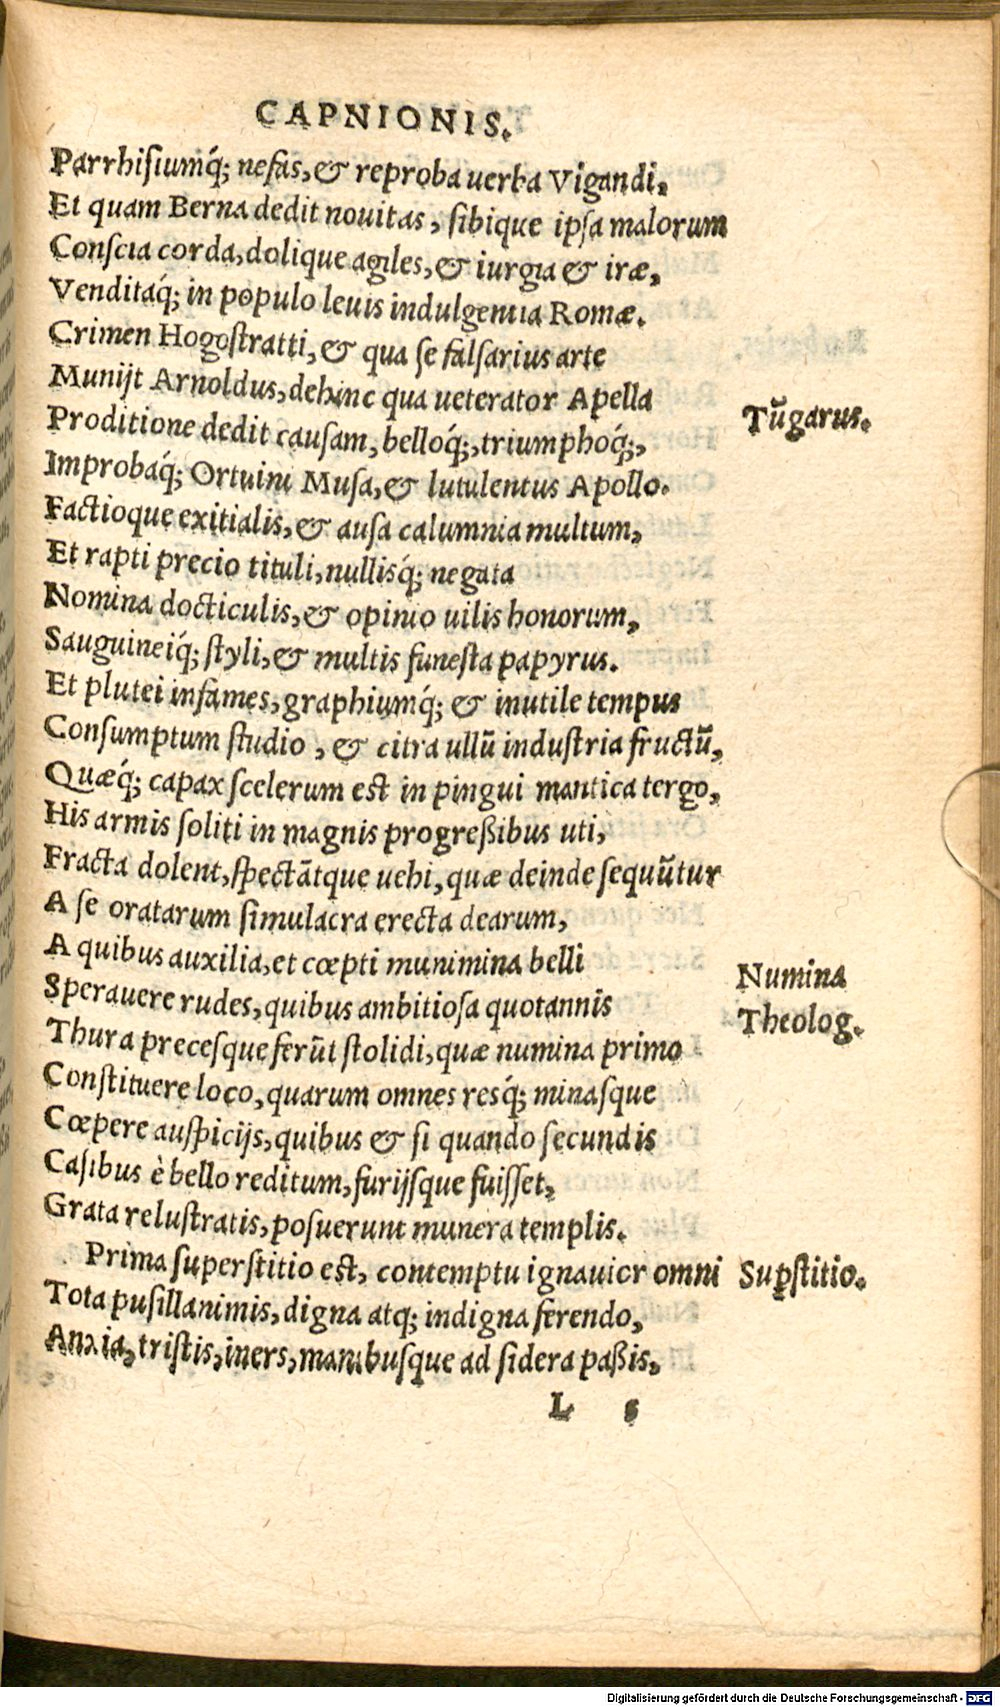 CAPNIONIS.
Parrhisiumq́; nefas, & reproba uerba Vigandi,
Et quam Berna dedit nouitas, sibique ipsa malorum
Conscia corda, dolique agiles, & iurgia & iræ,
Venditaq́; in populo leuis indulgentia Romæ.
Crimen Hogostratti, & qua se falsarius arte
Munijt Arnoldus, dehinc qua ueterator Apella
Tūgarus.
Proditione dedit causam, belloq́;, triumphoq́;,
Improbaq́; Ortuini Musa, & lutulentus Apollo.
Factioque exitialis, & ausa calumnia multum,
Et rapti precio tituli, nullisq́; negata
Nomina docticulis, & opinio uilis honorum,
Sauguineiq́; styli, & multis funesta papyrus.
Et plutei infames, graphiumq́; & inutile tempus
Consumptum studio, & citra ullū industria fructū,
Quæq́; capax scelerum est in pingui mantica tergo,
His armis soliti in magnis progreßibus uti,
Fracta dolent, spectātque uehi, quæ deinde sequūtur
A se oratarum simulacra erecta dearum,
A quibus auxilia, et cœpti munimina belli
Numina
Sperauere rudes, quibus ambitiosa quotannis
Theolog.
Thura precesque ferūt stolidi, quæ numina primo
Constituere loco, quarum omnes resq́; minasque
Cœpere auspicijs, quibus & si quando secundis
Casibus è bello reditum, furijsque fuisset,
Grata relustratis, posuerunt munera templis.
Prima superstitio est, contemptu ignauior omni
Sup̱stitio.
Tota pusillanimis, digna atq; indigna ferendo,
Anxia, tristis, iners, manibusque ad sidera paßis,
L 5
Digitalisierung gefördert durch die Deutsche Forschungsgemeinschaft - DFG